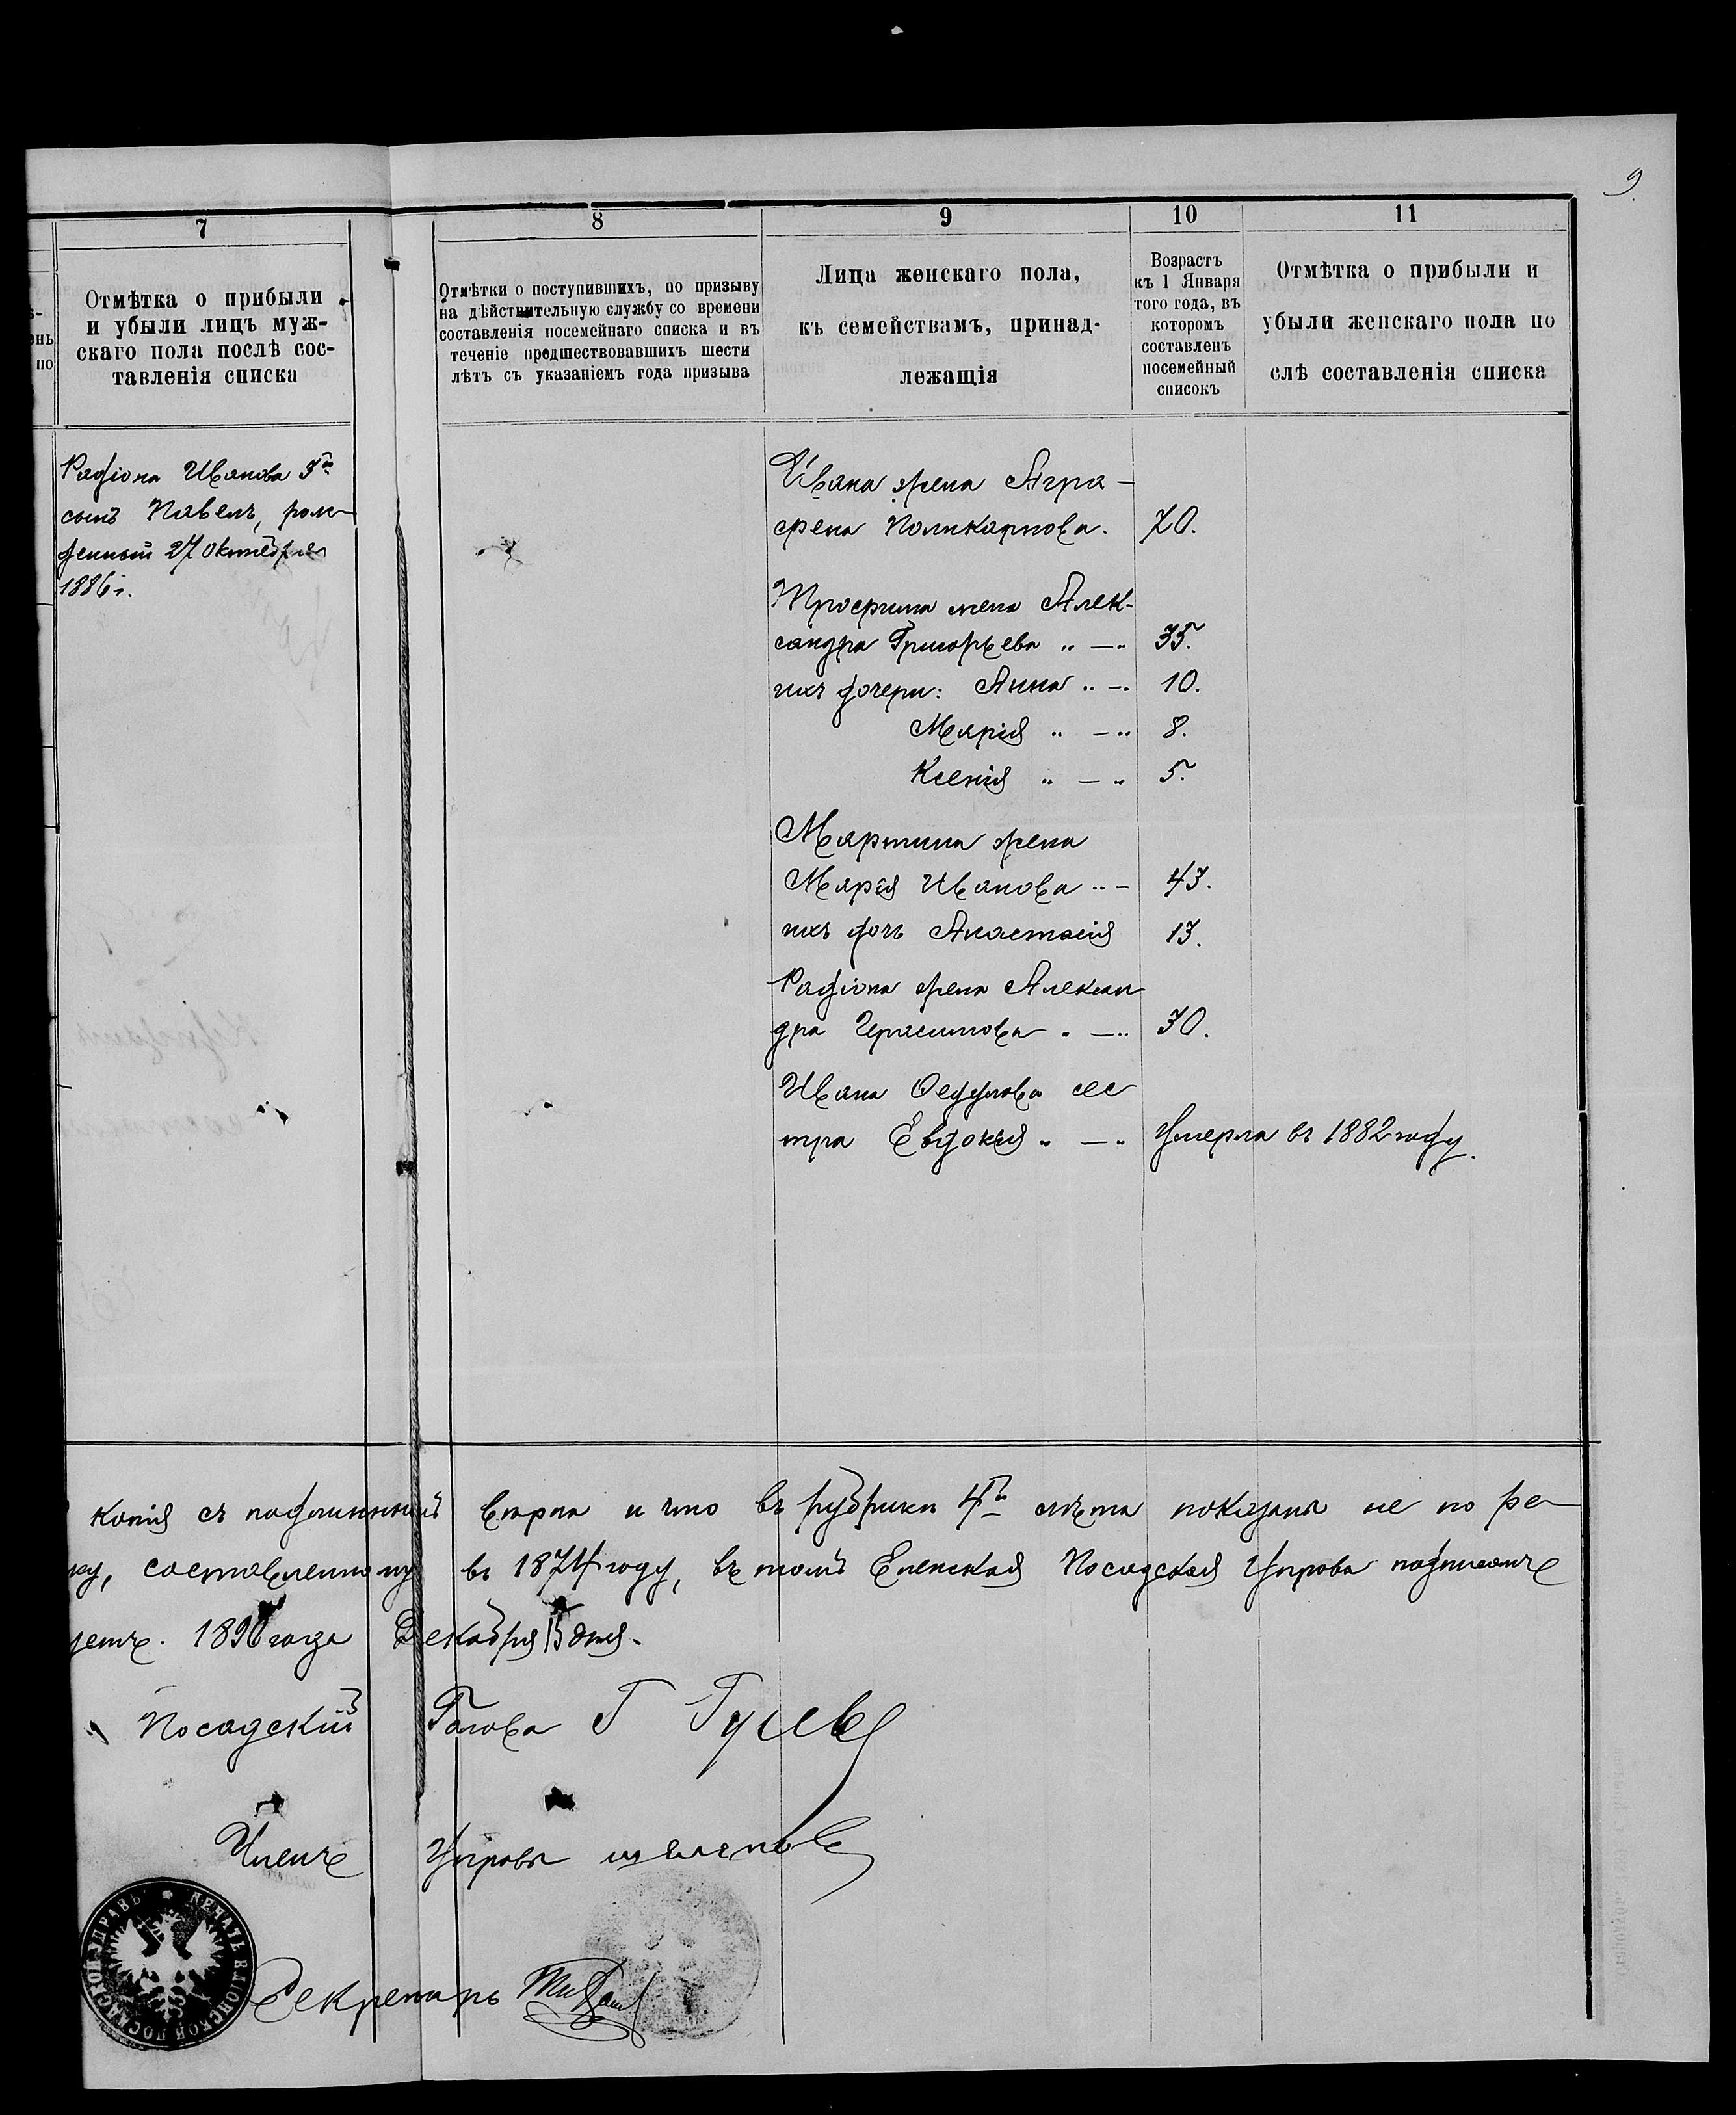 9
7
Отмѣтка о прибыли
и убыли лицъ муж-
скаго пола послѣ сос-
тавленія списка
8
Отмѣтки о поступившихъ, по призыву
на дѣйствительную службу со времени
составленія посемейнаго списка и въ
теченіе предшествовавшихъ шести
лѣтъ съ указаніемъ года призыва
9
Лица женскаго пола,
къ семействамъ, принад-
лежащія
10
Возрастъ
къ 1 Января
того года, въ
котором​ъ
составленъ
посемейный
списокъ
11
Отмѣтка о прибыли и
убыли женскаго пола по
слѣ составленія списка
Радіона Иванова 3й
сынъ Павелъ, рож-
денный 27 Октября
1886 г.
Ивана жена Агра-
фена Поликарпова. 70.
Трофима жена Алек-
сандра Григорьева „ — „ 35.
ихъ дочери: Анна „ — „ 10.
Марія „ — „ 8.
Ксенія „ — „ 5.
Мартина жена
Марія Иванова „ — 43.
ихъ дочь Анастасія 13.
Радіона жена Алексан
дра Герасимова „ — „ 30.
Ивана Федулова сес
тра Евдокія „ — „ Умерла въ 1882 году.
копія съ подлиннымъ вѣрна и что въ рубрики 4й лѣта показаны не по ре-
ку, составленному въ 1874 году, въ томъ Еленская Посадская Управа подписомъ
уетъ. 1890 года Декабря 15 дня.
Посадскій Голова Г Гусевъ
Членъ Управы
Секретарь
ПЕЧАТЬ ЕЛІОНСКОЙ ПОСАДСКОЙ УПРАВЫ